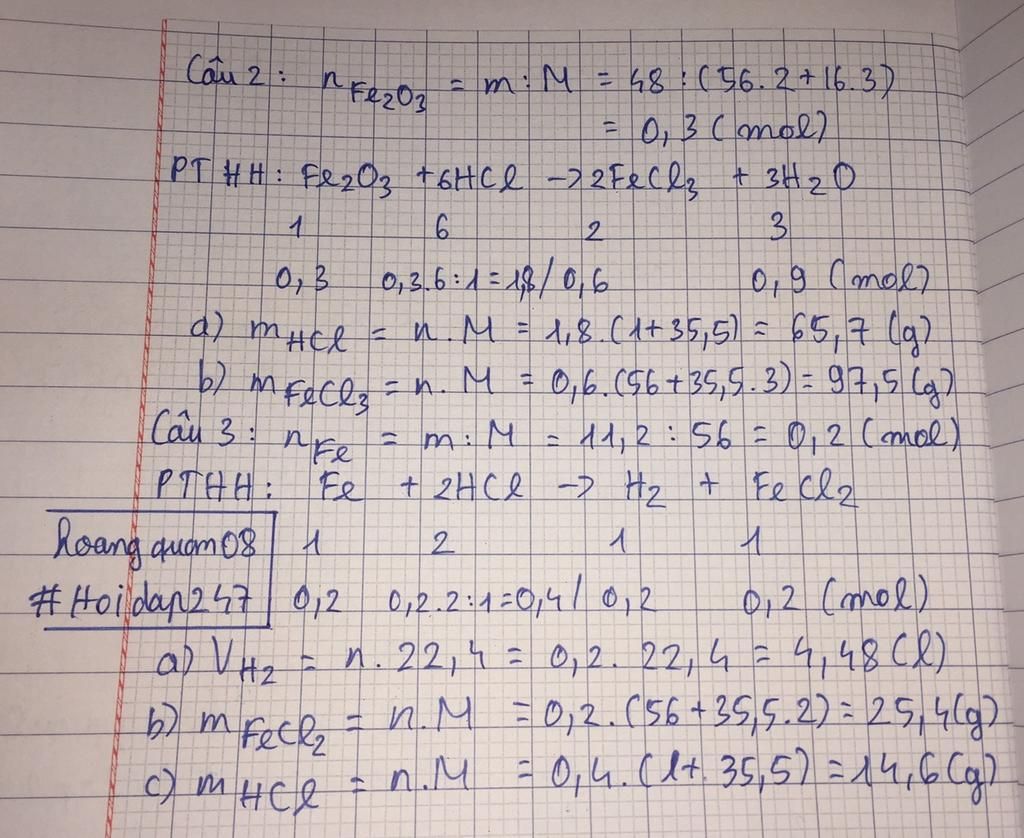 Câu 2 : nFe2O3 = m : M = 48 : (56.2+16.3)
= 0,3 (mol)
PTHH: Fe2O3 +6HCl -> 2FeCl3 + 3H2O
1 6 2 3
0,3 0,3.6:1=1,8/ 0,6 0,9 (mol)
a) mHCl = n.M = 1,8.(1+35,5) = 65,7 (g)
b) mFeCl3 = n.M = 0,6.(56+35,5.3)=97,5(g)
Câu 3 : nFe = m : M = 11,2 : 56 = 0,2 (mol)
PTHH: Fe + 2HCl -> H2 + FeCl2
hoangquan08 1 2 1 1
#Hoidap247 0,2 0,2.2:1=0,4/ 0,2 0,2 (mol)
a) VH2 = n.22,4 = 0,2.22,4 = 4,48 (l)
b) mFeCl2 = n.M = 0,2.(56+35,5.2)=25,4(g)
c) mHCl = n.M = 0,4.(1+35,5)=14,6(g)